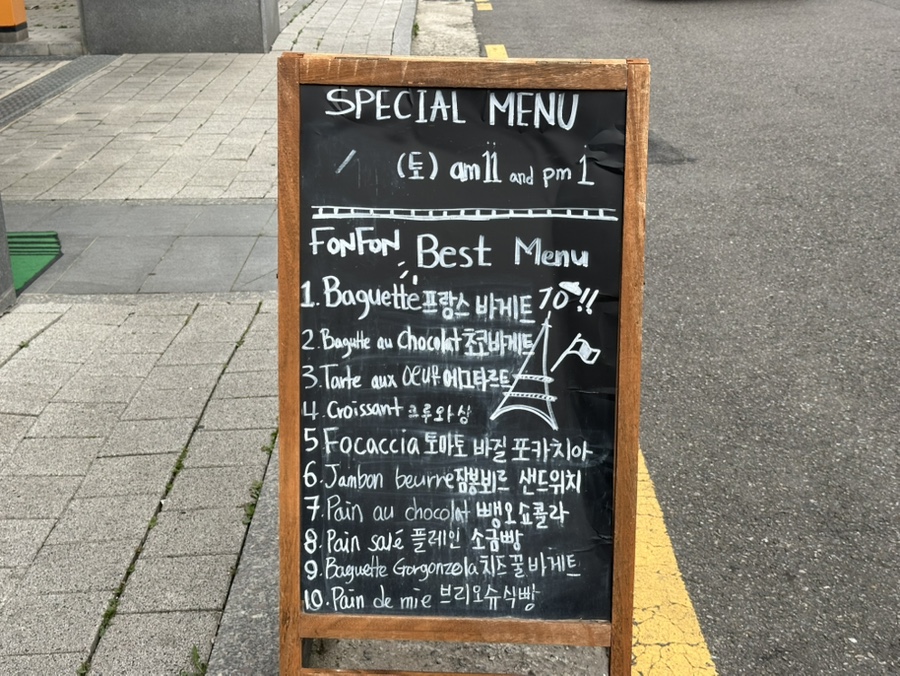 SPECIAL MENU
(토) am 11 and pm 1
FONFON Best Menu
1. Baguette 프랑스 바게트 10!!
2. Bagutte au chocolat 초코바게트
3. Tarte aux oeuf 에그타르트
4. Croissant 크루와상
5 Focaccia 토마토 바질 포카치아
6. Jambon beurre 잠봉뵈르 샌드위치
7. Pain au chocolat 뺑오쇼콜라
8. Pain salé 플레인 소금빵
9. Baguette Gorgonzola 치즈꿀바게트
10. Pain de mie 브리오슈식빵